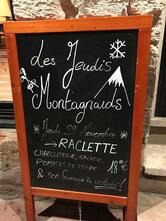 Les Jeudis
Montagnards
Jeudi 29 Novembre
→ RACLETTE
CHARCUTERIE, SALADE,
POMMES DE TERRE
18.00€
& son fromage à